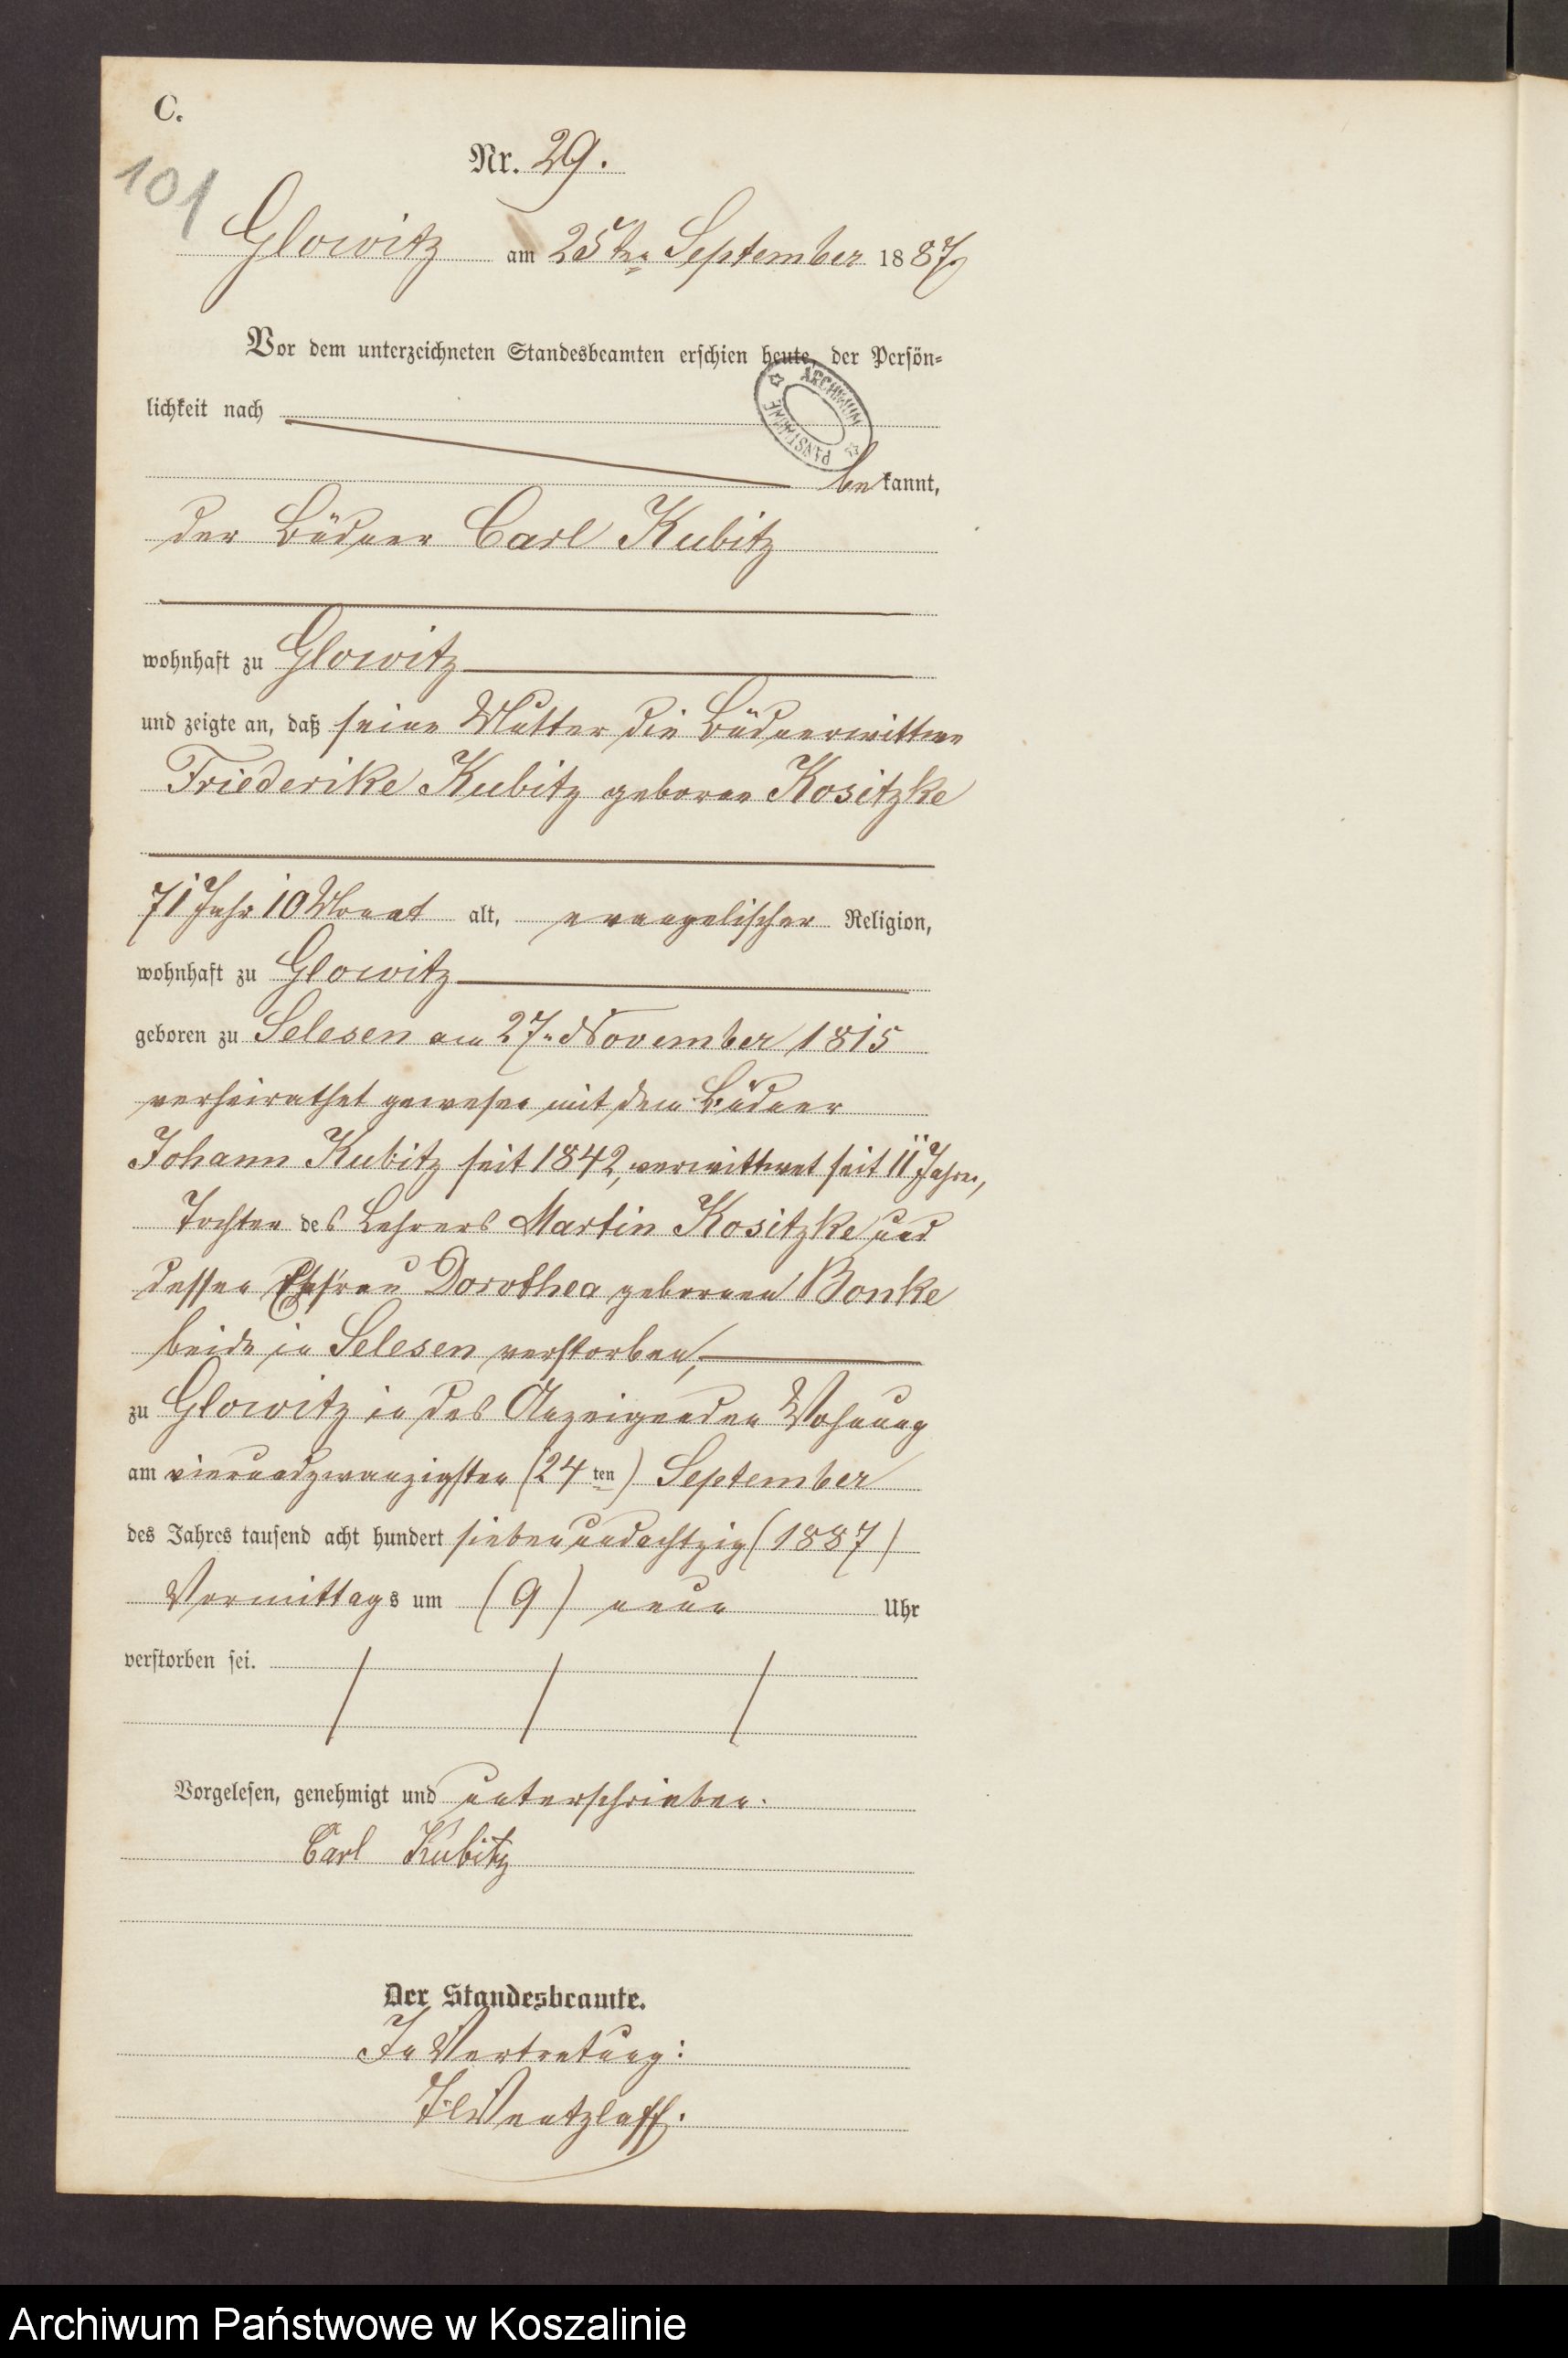 C.
101
Nr. 29.
Glowitz am 25ten September 1887.
Vor dem unterzeichneten Standesbeamten erschien heute, der Persön-
lichkeit nach
ARCHIWUM PAŃSTWOWE
bekannt,
der Büdner Carl Kubitz
wohnhaft zu Glowitz
und zeigte an, daß seine Mutter die Büdnerwittwe
Friederike Kubitz geborne Kositzke
71 Jahr 10 Monat alt, evangelischer Religion,
wohnhaft zu Glowitz
geboren zu Selesen am 27. November 1815
verheirathet gewesen mit dem Büdner
Johann Kubitz seit 1842, verwittwet seit 11 Jahren,
Tochter des Lehrers Martin Kositzke und
dessen Ehefrau Dorothea gebornen Bonke
beide in Selesen verstorben,
zu Glowitz in des Anzeigenden Wohnung
am vierundzwanzigsten (24ten) September
des Jahres tausend acht hundert siebenundachtzig (1887)
Vormittags um (9) neun Uhr
verstorben sei.
Vorgelesen, genehmigt und unterschrieben.
Carl Kubitz
Der Standesbeamte.
In Vertretung:
Wentzlaff.
Archiwum Państwowe w Koszalinie